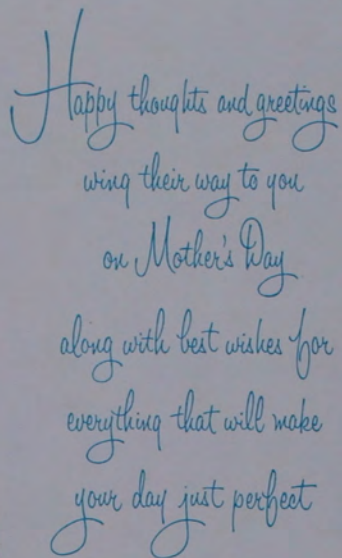 Happy thoughts and greetings
wing their way to you
on Mother's Day
along with best wishes for
everything that will make
your day just perfect